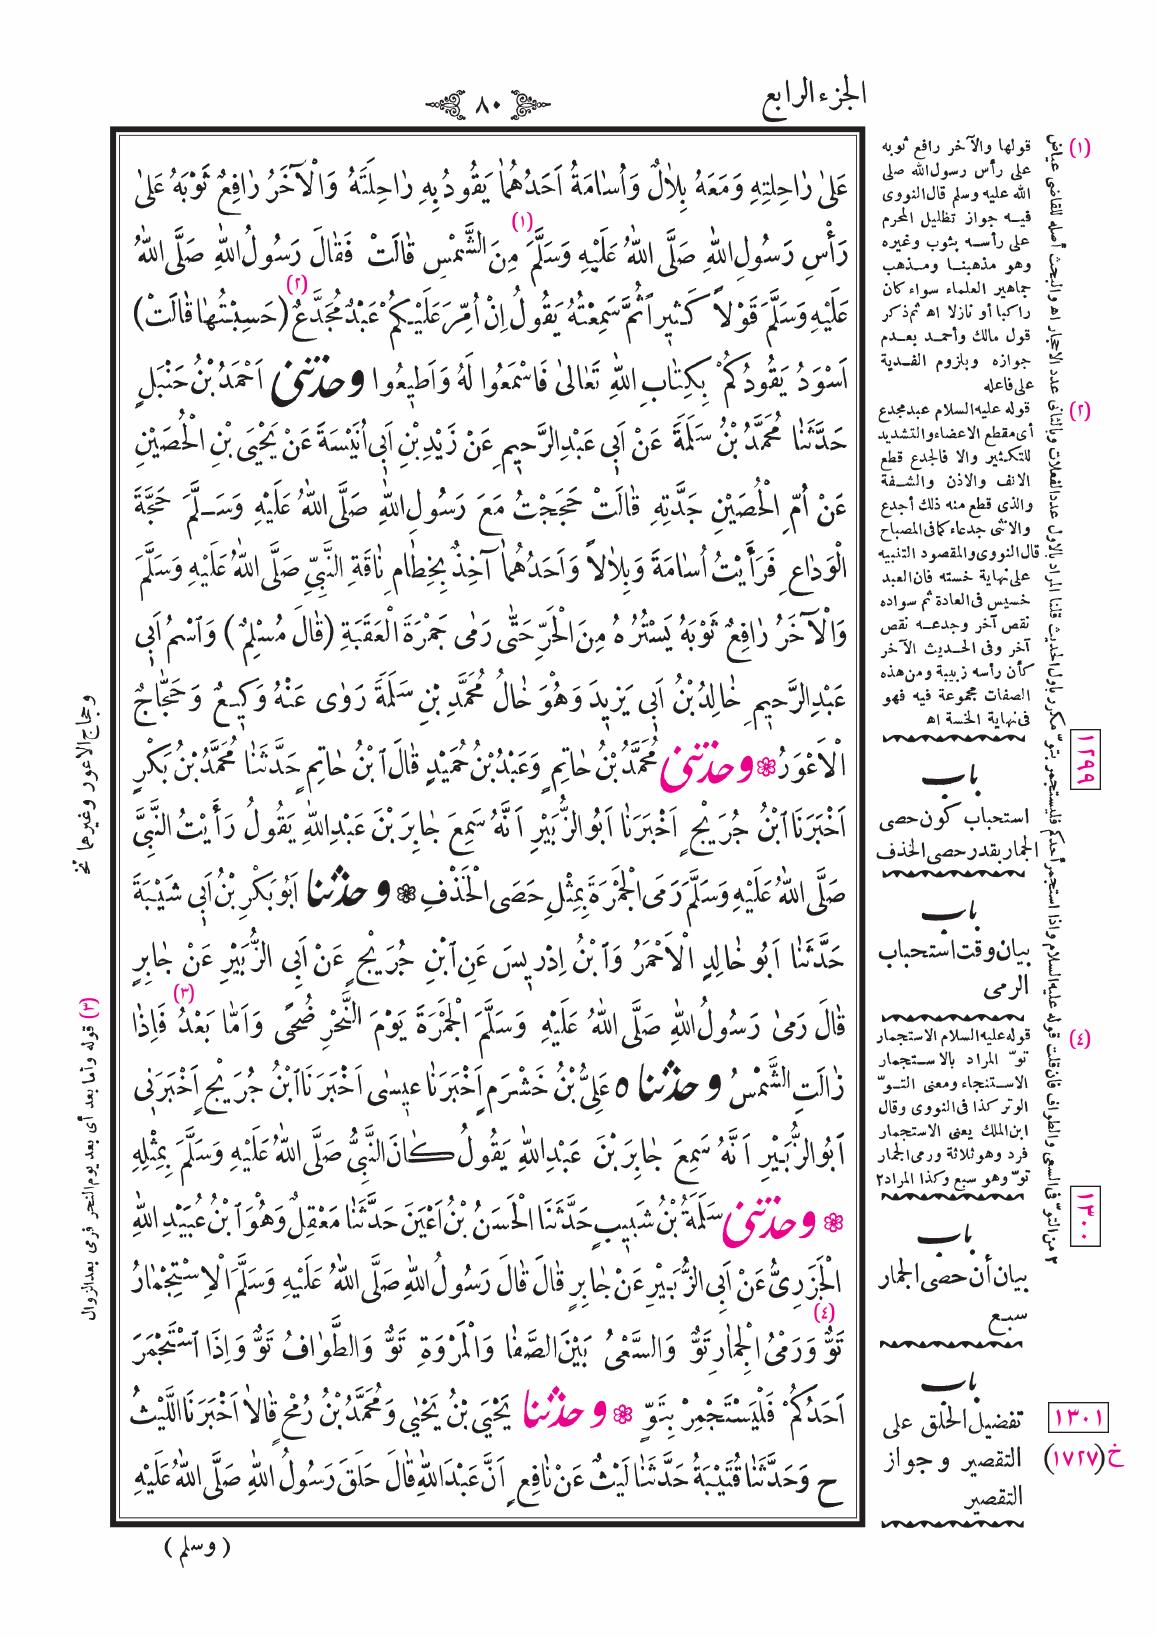 الجزء الرابع
٨٠
عَلىٰ رٰاحِلَتِهِ وَمَعَهُ بِلاٰلٌ وَاُسٰامَةُ اَحَدُهُمٰا يَقُودُ بِهِ رٰاحِلَتَهُ وَالْآخَرُ رٰافِعٌ ثَوْبَهُ عَلىٰ
(١)
رَأْسِ رَسُولِ اللهِ صَلَّى اللهُ عَلَيْهِ وَسَلَّمَ مِنَ الشَّمْسِ قٰالَتْ فَقٰالَ رَسُولُ اللهِ صَلَّى اللهُ
(٢)
عَلَيْهِ وَسَلَّمَ قَوْلاً كَثٖيراً ثُمَّ سَمِعْتُهُ يَقُولُ اِنْ اُمِّرَ عَلَيْكُمْ عَبْدٌ مُجَدَّعٌ (حَسِبْتُهٰا قٰالَتْ)
اَسْوَدُ يَقُودُكُمْ بِكِتٰابِ اللهِ تَعٰالىٰ فَاسْمَعُوا لَهُ وَاَطٖيعُوا وحدثنى اَحْمَدُ بْنُ حَنْبَلٍ
حَدَّثَنٰا مُحَمَّدُ بْنُ سَلَمَةَ عَنْ اَبٖي عَبْدِالرَّحٖيمِ عَنْ زَيْدِ بْنِ اَبٖي اُنَيْسَةَ عَنْ يَحْيَى بْنِ الْحُصَيْنِ
عَنْ اُمِّ الْحُصَيْنِ جَدَّتِهِ قٰالَتْ حَجَجْتُ مَعَ رَسُولِ اللهِ صَلَّى اللهُ عَلَيْهِ وَسَلَّمَ حَجَّةَ
الْوَدٰاعِ فَرَأَيْتُ اُسٰامَةَ وَبِلاٰلاً وَاَحَدُهُمٰا آخِذٌ بِخِطٰامِ نٰاقَةِ النَّبِيِّ صَلَّى اللهُ عَلَيْهِ وَسَلَّمَ
وَالْآخَرُ رٰافِعٌ ثَوْبَهُ يَسْتُرُهُ مِنَ الْحَرِّ حَتّٰى رَمٰى جَمْرَةَ الْعَقَبَةِ (قٰالَ مُسْلِمٌ) وَٱسْمُ اَبٖي
عَبْدِالرَّحٖيمِ خٰالِدُ بْنُ اَبٖي يَزٖيدَ وَهُوَ خٰالُ مُحَمَّدِ بْنِ سَلَمَةَ رَوٰى عَنْهُ وَكٖيعٌ وَحَجّٰاجٌ
الْاَعْوَرُ ۞ وحدثنى مُحَمَّدُ بْنُ حٰاتِمٍ وَعَبْدُ بْنُ حُمَيْدٍ قٰالَ ٱبْنُ حٰاتِمٍ حَدَّثَنٰا مُحَمَّدُ بْنُ بَكْرٍ
اَخْبَرَنَا ٱبْنُ جُرَيْجٍ اَخْبَرَنٰا اَبُو الزُّبَيْرِ اَنَّهُ سَمِعَ جٰابِرَ بْنَ عَبْدِاللهِ يَقُولُ رَأَيْتُ النَّبِيَّ
صَلَّى اللهُ عَلَيْهِ وَسَلَّمَ رَمَى الْجَمْرَةَ بِمِثْلِ حَصَى الْخَذْفِ ۞ وحدثنا اَبُو بَكْرِ بْنُ اَبٖي شَيْبَةَ
حَدَّثَنٰا اَبُو خٰالِدٍ الْاَحْمَرُ وَٱبْنُ اِدْرٖيسَ عَنِ ٱبْنِ جُرَيْجٍ عَنْ اَبِي الزُّبَيْرِ عَنْ جٰابِرٍ
(٣)
قٰالَ رَمىٰ رَسُولُ اللهِ صَلَّى اللهُ عَلَيْهِ وَسَلَّمَ الْجَمْرَةَ يَوْمَ النَّحْرِ ضُحًى وَاَمّٰا بَعْدُ فَاِذٰا
زٰالَتِ الشَّمْسُ وحدثنا ٥ عَلِيُّ بْنُ خَشْرَمٍ اَخْبَرَنٰا عٖيسٰى اَخْبَرَنَا ٱبْنُ جُرَيْجٍ اَخْبَرَنٖي
اَبُو الزُّبَيْرِ اَنَّهُ سَمِعَ جٰابِرَ بْنَ عَبْدِاللهِ يَقُولُ كٰانَ النَّبِيُّ صَلَّى اللهُ عَلَيْهِ وَسَلَّمَ بِمِثْلِهِ
۞ وحدثنى سَلَمَةُ بْنُ شَبٖيبٍ حَدَّثَنَا الْحَسَنُ بْنُ اَعْيَنَ حَدَّثَنٰا مَعْقِلٌ وَهُوَ ٱبْنُ عُبَيْدِ اللهِ
الْجَزَرِيُّ عَنْ اَبِي الزُّبَيْرِ عَنْ جٰابِرٍ قٰالَ قٰالَ رَسُولُ اللهِ صَلَّى اللهُ عَلَيْهِ وَسَلَّمَ الْاِسْتِجْمٰارُ
(٤)
تَوٌّ وَرَمْيُ الْجِمٰارِ تَوٌّ وَالسَّعْيُ بَيْنَ الصَّفٰا وَالْمَرْوَةِ تَوٌّ وَالطَّوٰافُ تَوٌّ وَاِذَا ٱسْتَجْمَرَ
اَحَدُكُمْ فَلْيَسْتَجْمِرْ بِتَوٍّ ۞ وحدثنا يَحْيَى بْنُ يَحْيٰى وَمُحَمَّدُ بْنُ رُمْحٍ قٰالاٰ اَخْبَرَنَا اللَّيْثُ
ح وَحَدَّثَنٰا قُتَيْبَةُ حَدَّثَنٰا لَيْثٌ عَنْ نٰافِعٍ اَنَّ عَبْدَاللهِ قٰالَ حَلَقَ رَسُولُ اللهِ صَلَّى اللهُ عَلَيْهِ
(وسلم)
(١)
قولها والآخر رافع ثوبه
على رأس رسول الله صلى
الله عليه وسلم قال النووى
فيه جواز تظليل المحرم
على رأسه بثوب وغيره
وهو مذهبنا ومذهب
جماهير العلماء سواء كان
راكبا أو نازلا اه ثم ذكر
قول مالك وأحمد بعدم
جوازه وبلزوم الفدية
على فاعله
(٢)
قوله عليه السلام عبد مجدع
أى مقطع الاعضاء والتشديد
للتكثير والا فالجدع قطع
الانف والاذن والشفة
والذى قطع منه ذلك أجدع
والانثى جدعاء كما فى المصباح
قال النووى والمقصود التنبيه
على نهاية خسته فان العبد
خسيس فى العادة ثم سواده
نقص آخر وجدعه نقص
آخر وفى الحديث الآخر
كأن رأسه زبيبة ومن هذه
الصفات مجموعة فيه فهو
فى نهاية الخسة اه
١٢٩٩
باب
استحباب كون حصى
الجمار بقدر حصى الخذف
باب
بيان وقت استحباب
الرمى
(٤)
قوله عليه السلام الاستجمار
توّ المراد بالاستجمار
الاستنجاء ومعنى التوّ
الوتر كذا فى النووى وقال
ابن الملك يعنى الاستجمار
فرد وهو ثلاثة ورمى الجمار
توّ وهو سبع وكذا المراد ٢
١٣٠٠
باب
بيان أن حصى الجمار
سبع
باب
١٣٠١
تفضيل الحلق على
خ (١٧٢٧)
التقصير وجواز
التقصير
٢ من التوّ فى السعى والطواف فان قلت قوله عليه السلام واذا استجمر أحدكم فليستجمر بتوّ مكرر باول الحديث قلنا المراد بالاول عدد الفعلات وبالثانى عدد الاحجار اه والبحث أصله للقاضى عياض
وحجاج الاعور وغيرهما نخ
(٣) قوله وأما بعد أى بعد يوم النحر فرمى بعد الزوال